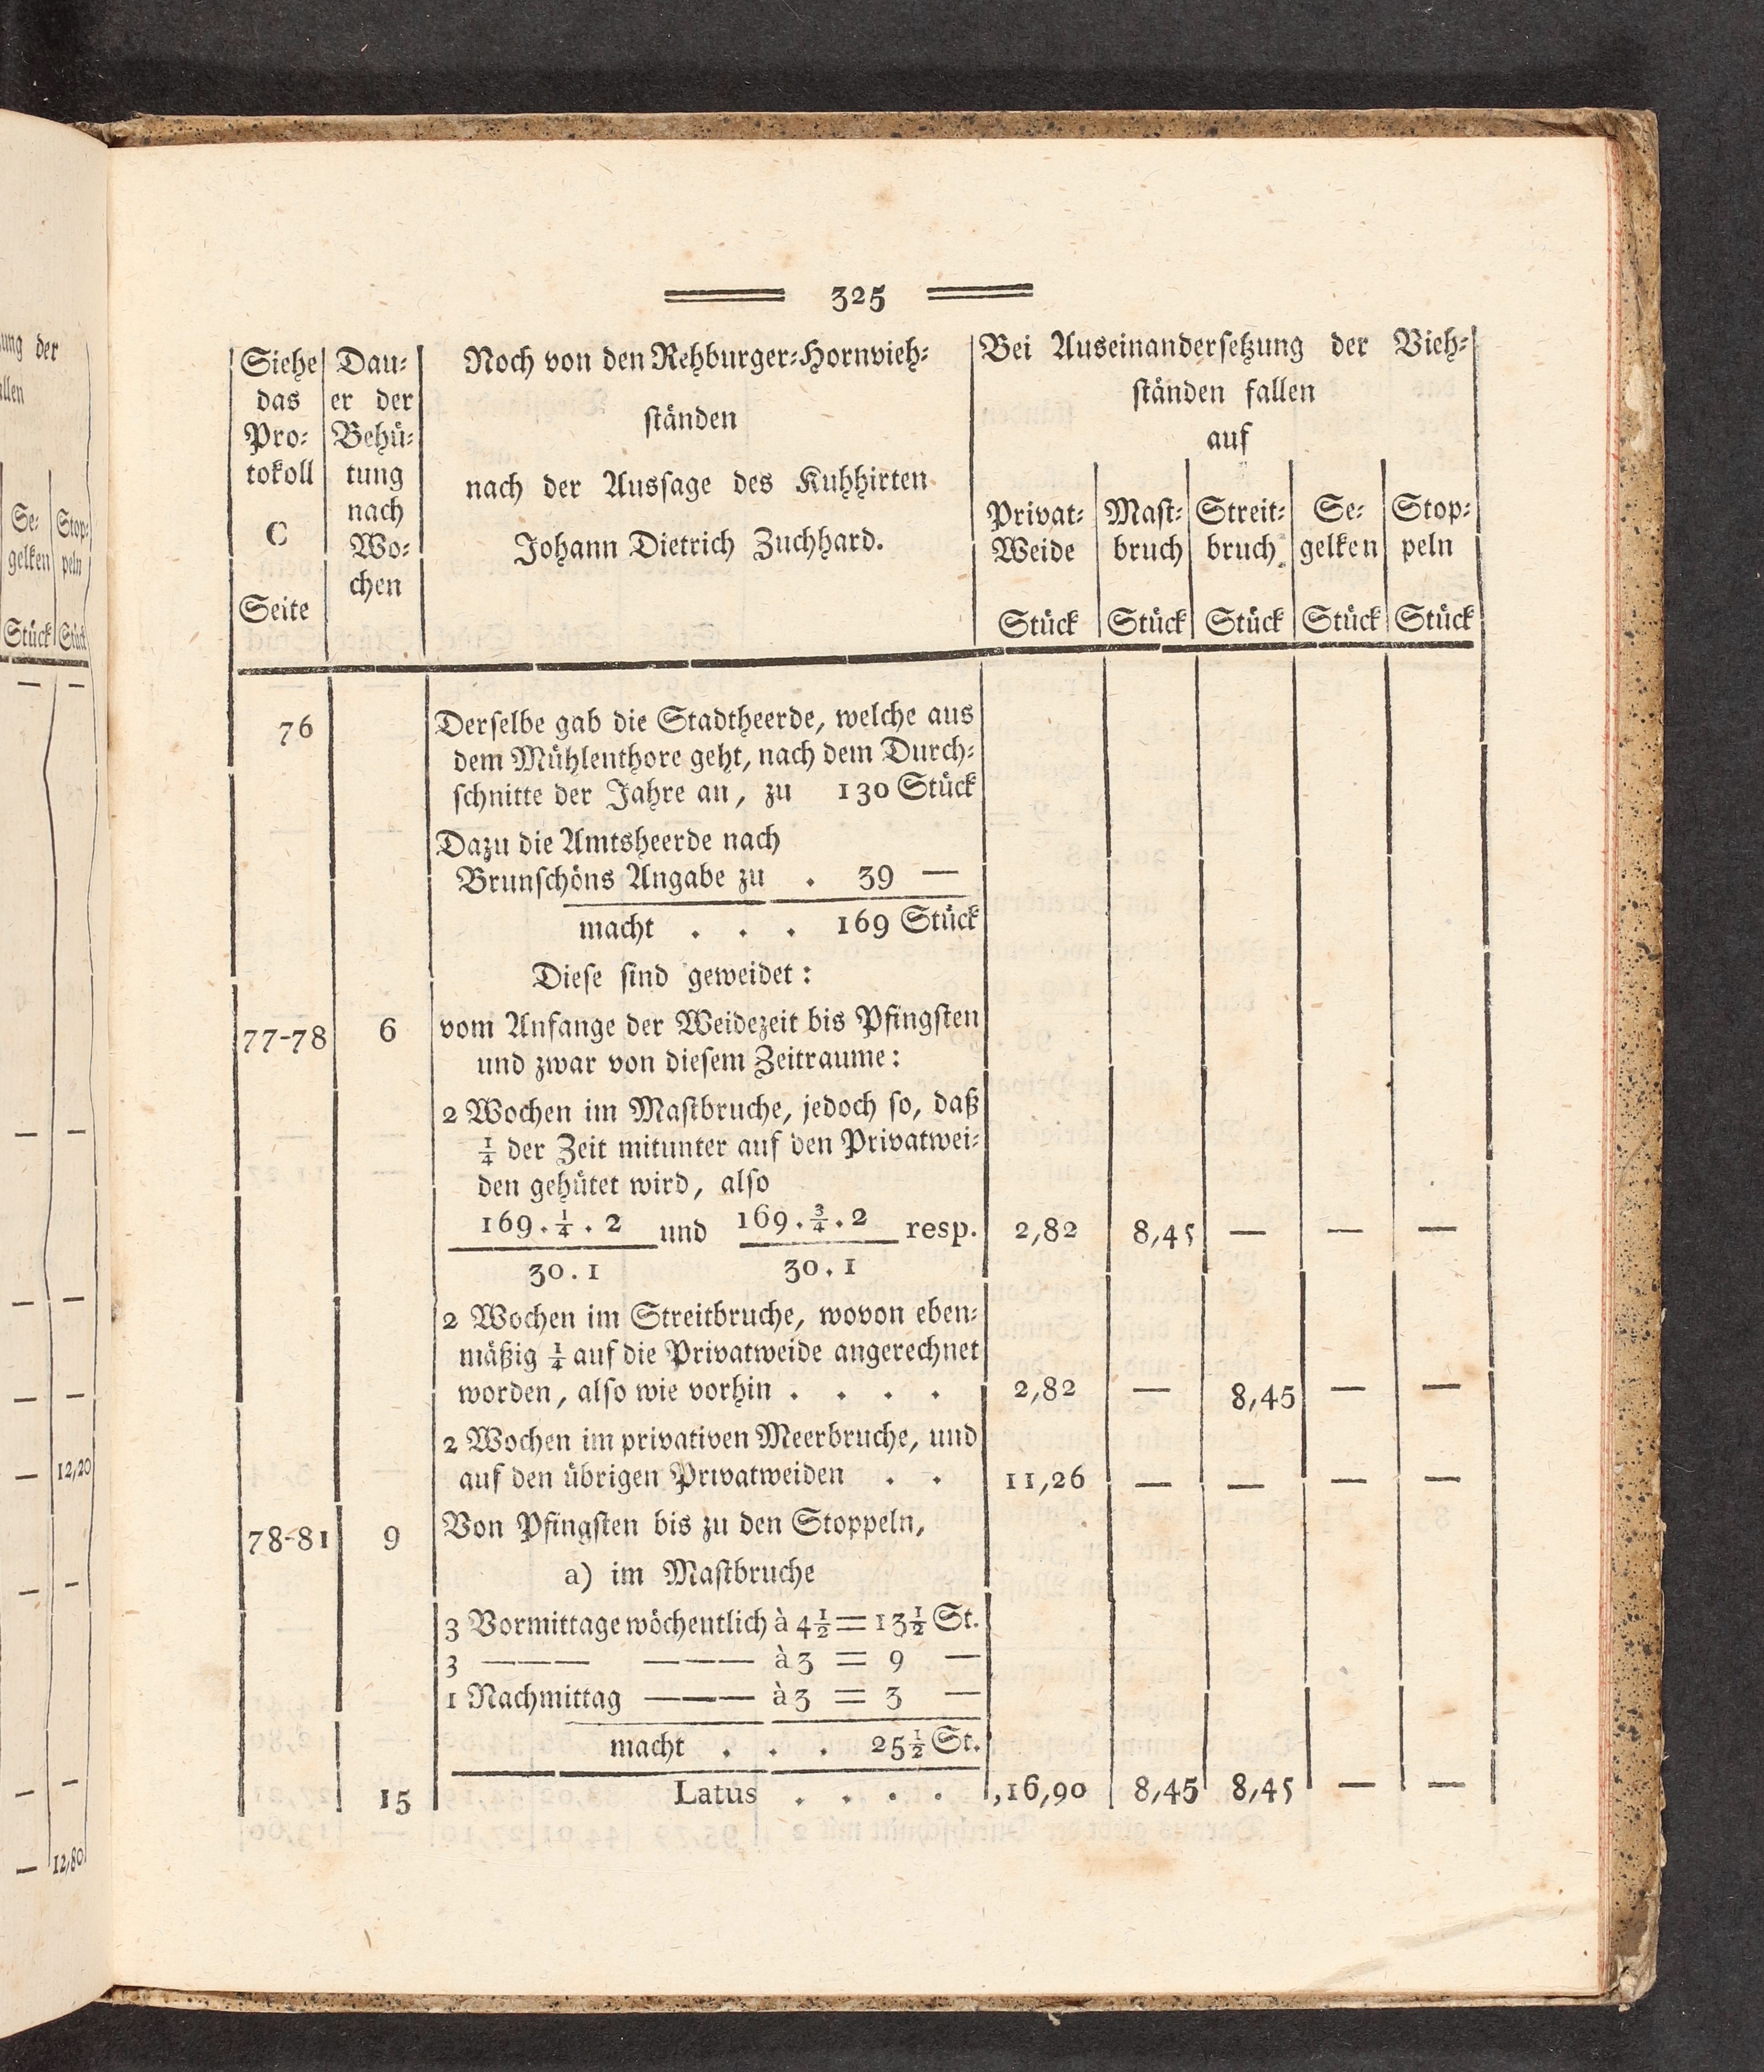 325
Siehe das Protokoll C Seite
Dauer der Behütung nach Wochen
Noch von den Rehburger-Hornvieh-
ständen
nach der Aussage des Kuhhirten
Johann Dietrich Zuchhard.
Bei Auseinandersetzung der Vieh-
ständen fallen
auf
Privat- Mast- Streit- Se- Stop-
Weide bruch bruch gelken peln
Stück Stück Stück Stück Stück
76 Derselbe gab die Stadtheerde, welche aus
dem Mühlenthore geht, nach dem Durch-
schnitte der Jahre an, zu 130 Stück
Dazu die Amtsheerde nach
Brunschöns Angabe zu . 39 —
macht . . . 169 Stück
Diese sind geweidet:
77-78 6 vom Anfange der Weidezeit bis Pfingsten
und zwar von diesem Zeitraume:
2 Wochen im Mastbruche, jedoch so, daß
¼ der Zeit mitunter auf den Privatwei-
den gehütet wird, also
169 . ¼ . 2 und 169 . ¾ . 2 resp. 2,82 8,45 — — —
30 . 1 30 . 1
2 Wochen im Streitbruche, wovon eben-
mäßig ¼ auf die Privatweide angerechnet
worden, also wie vorhin . . . . 2,82 — 8,45 — —
2 Wochen im privativen Meerbruche, und
auf den übrigen Privatweiden . . 11,26 — — — —
78-81 9 Von Pfingsten bis zu den Stoppeln,
a) im Mastbruche
3 Vormittage wöchentlich à 4½ = 13½ St.
3 ——— ——— à 3 = 9 —
1 Nachmittag ——— à 3 = 3 —
macht . . . 25½ St.
15 Latus . . . . 16,90 8,45 8,45 — —
ung der
allen
Se- Stop-
gelken peln
Stück Stück
— —
— —
— —
— —
— 12,20
— —
— —
— 12,80